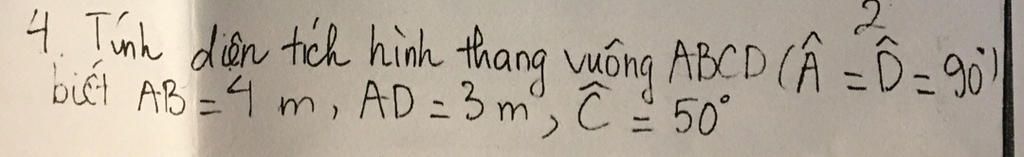 4. Tính diện tích hình thang vuông ABCD (Â = D̂ = 90°)
2
biết AB = 4 m, AD = 3 m, Ĉ = 50°